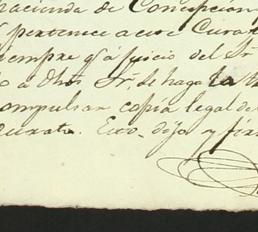 hacienda de Concepción
pertenece a ese Curat
siempre q.e á juicio del S.r
á dhos Sr. de haga la
compulsar copia legal del
curato. Esto dijo y fir